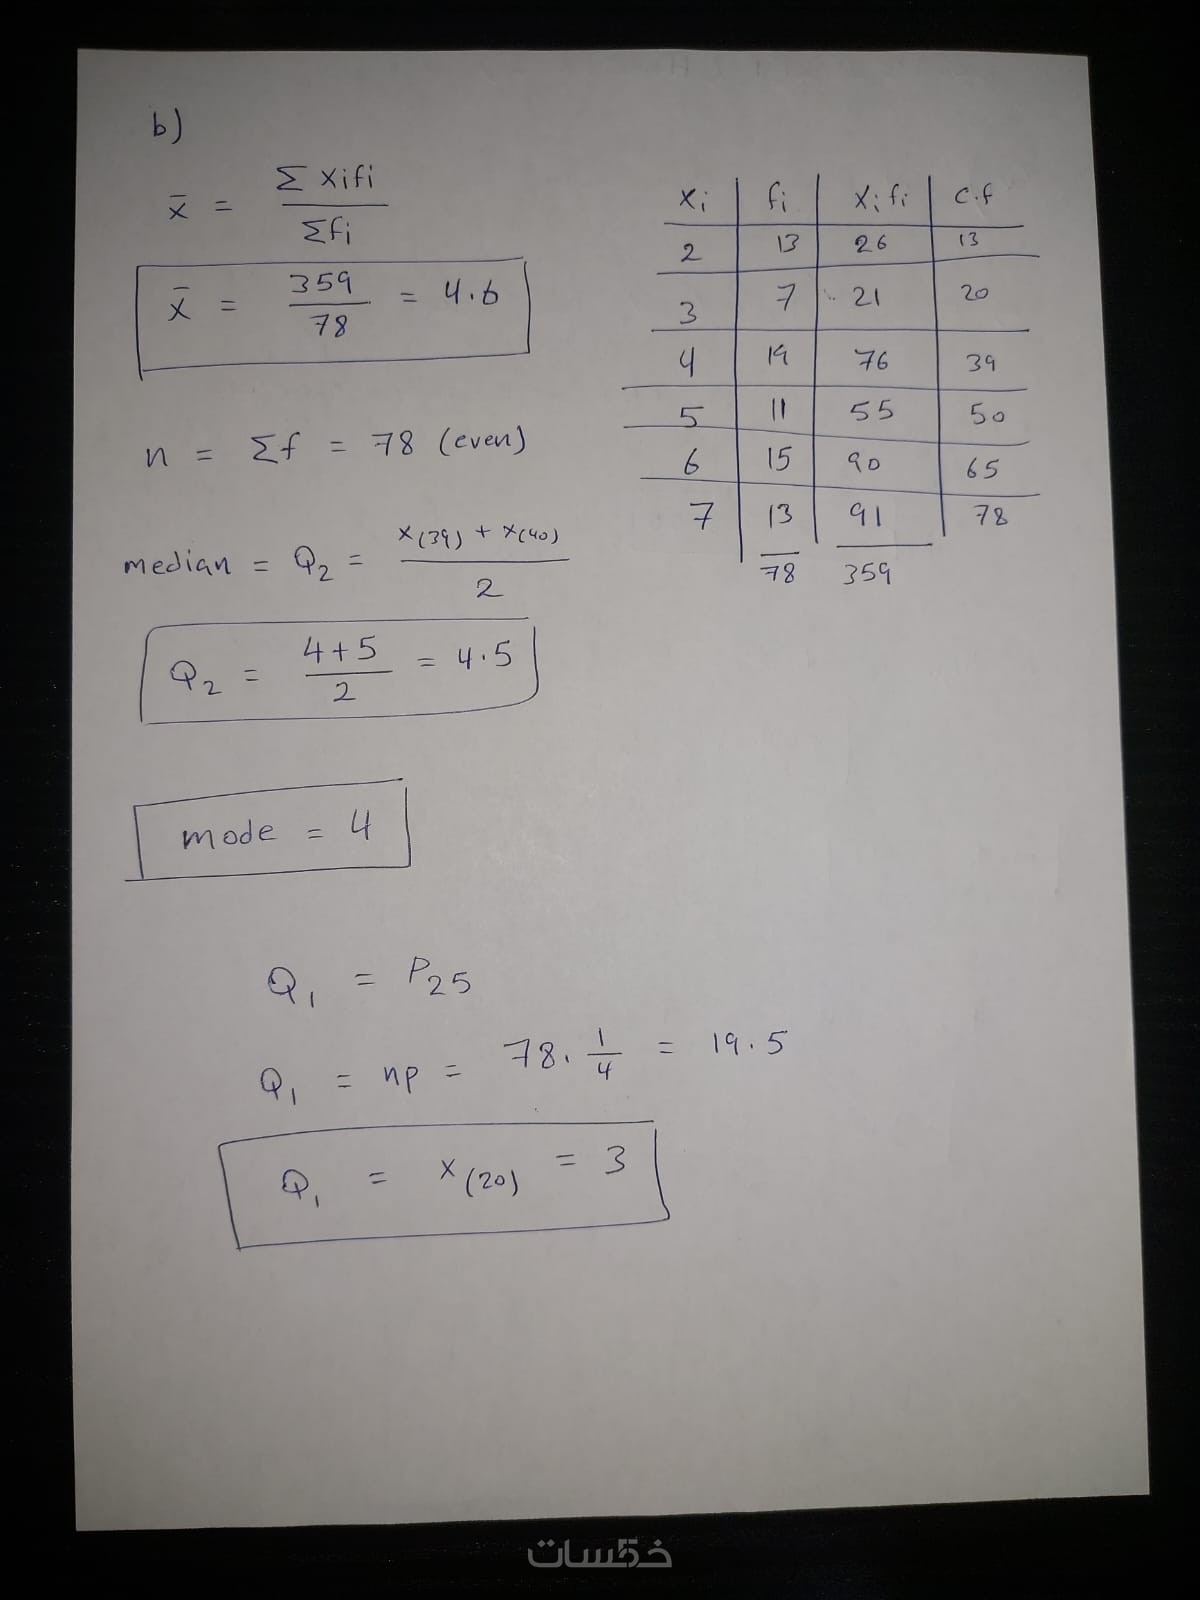 b)
x̄ = Σ xifi / Σfi
x̄ = 359 / 78 = 4.6
n = Σf = 78 (even)
median = Q2 = x(39) + x(40) / 2
Q2 = 4+5 / 2 = 4.5
mode = 4
Q1 = P25
Q1 = np = 78. 1/4 = 19.5
Q1 = x(20) = 3
xi fi xi fi c.f
2 13 26 13
3 7 21 20
4 19 76 39
5 11 55 50
6 15 90 65
7 13 91 78
78 359
خمسات